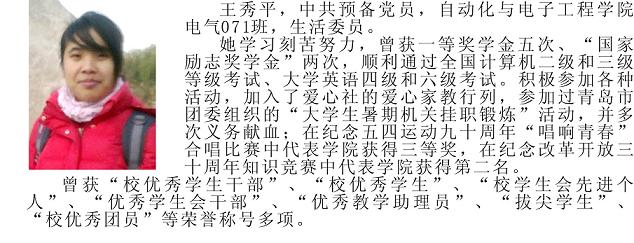 王秀平，中共预备党员，自动化与电子工程学院
电气071班，生活委员。
她学习刻苦努力，曾获一等奖学金五次、“国家
励志奖学金”两次，顺利通过全国计算机二级和三级
等级考试、大学英语四级和六级考试。积极参加各种
活动，加入了爱心社的爱心家教行列，参加过青岛市
团委组织的“大学生暑期机关挂职锻炼”活动，并多
次义务献血；在纪念五四运动九十周年“唱响青春”
合唱比赛中代表学院获得三等奖，在纪念改革开放三
十周年知识竞赛中代表学院获得第二名。
曾获“校优秀学生干部”、“校优秀学生”、“校学生会先进个
人”、“优秀学生会干部”、“优秀教学助理员”、“拔尖学生”、
“校优秀团员”等荣誉称号多项。